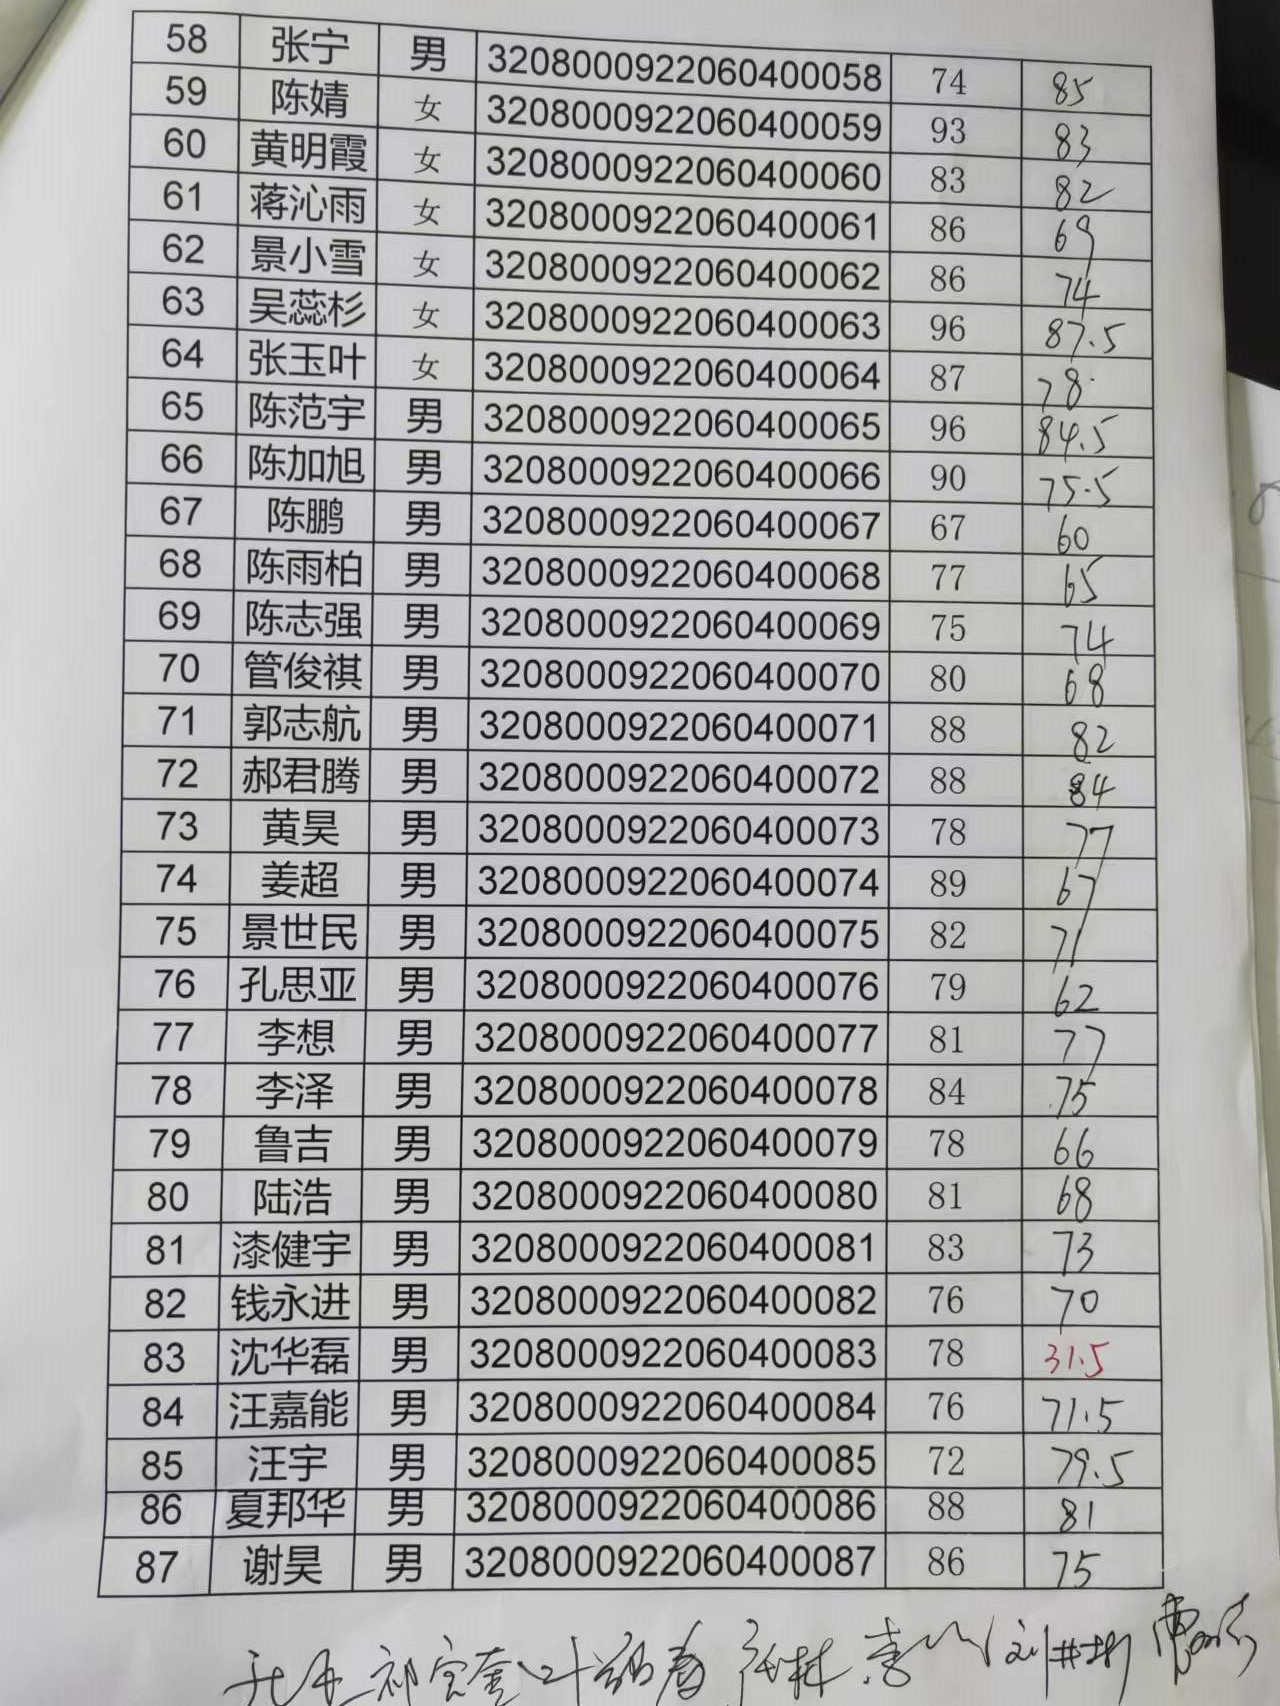 58 张宁 男 3208000922060400058 74 85
59 陈婧 女 3208000922060400059 93 83
60 黄明霞 女 3208000922060400060 83 82
61 蒋沁雨 女 3208000922060400061 86 69
62 景小雪 女 3208000922060400062 86 74
63 吴蕊杉 女 3208000922060400063 96 87.5
64 张玉叶 女 3208000922060400064 87 78
65 陈范宇 男 3208000922060400065 96 84.5
66 陈加旭 男 3208000922060400066 90 75.5
67 陈鹏 男 3208000922060400067 67 60
68 陈雨柏 男 3208000922060400068 77 65
69 陈志强 男 3208000922060400069 75 74
70 管俊祺 男 3208000922060400070 80 68
71 郭志航 男 3208000922060400071 88 82
72 郝君腾 男 3208000922060400072 88 84
73 黄昊 男 3208000922060400073 78 77
74 姜超 男 3208000922060400074 89 67
75 景世民 男 3208000922060400075 82 71
76 孔思亚 男 3208000922060400076 79 62
77 李想 男 3208000922060400077 81 77
78 李泽 男 3208000922060400078 84 75
79 鲁吉 男 3208000922060400079 78 66
80 陆浩 男 3208000922060400080 81 68
81 漆健宇 男 3208000922060400081 83 73
82 钱永进 男 3208000922060400082 76 70
83 沈华磊 男 3208000922060400083 78 31.5
84 汪嘉能 男 3208000922060400084 76 71.5
85 汪宇 男 3208000922060400085 72 79.5
86 夏邦华 男 3208000922060400086 88 81
87 谢昊 男 3208000922060400087 86 75